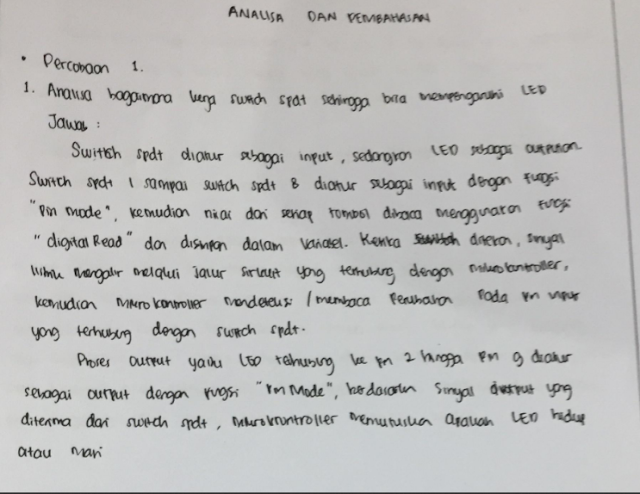 ANALISA DAN PEMBAHASAN
• Percobaan 1.
1. Analisa bagaimana kerja switch spdt sehingga bisa mempengaruhi LED
Jawab :
Switch spdt diatur sebagai input, sedangkan LED sebagai outputan.
Switch spdt 1 sampai switch spdt 8 diatur sebagai input dengan fungsi
"Pin mode", kemudian nilai dari setiap tombol dibaca menggunakan fungsi
"digital Read" dan disimpan dalam variabel. Ketika switch ditekan, sinyal
mengalir melalui jalur sirkuit yang terhubung dengan mikrokontroller,
kemudian mikrokontroller mendeteksi / membaca Perubahan Pada pin input
yang terhubung dengan switch spdt.
Proses output yaitu LED terhubung ke pin 2 hingga pin 9 diatur
sebagai output dengan fungsi "Pin Mode", berdasarkan sinyal yang
diterima dari switch spdt, mikrokontroller memutuskan apakah LED hidup
atau mati